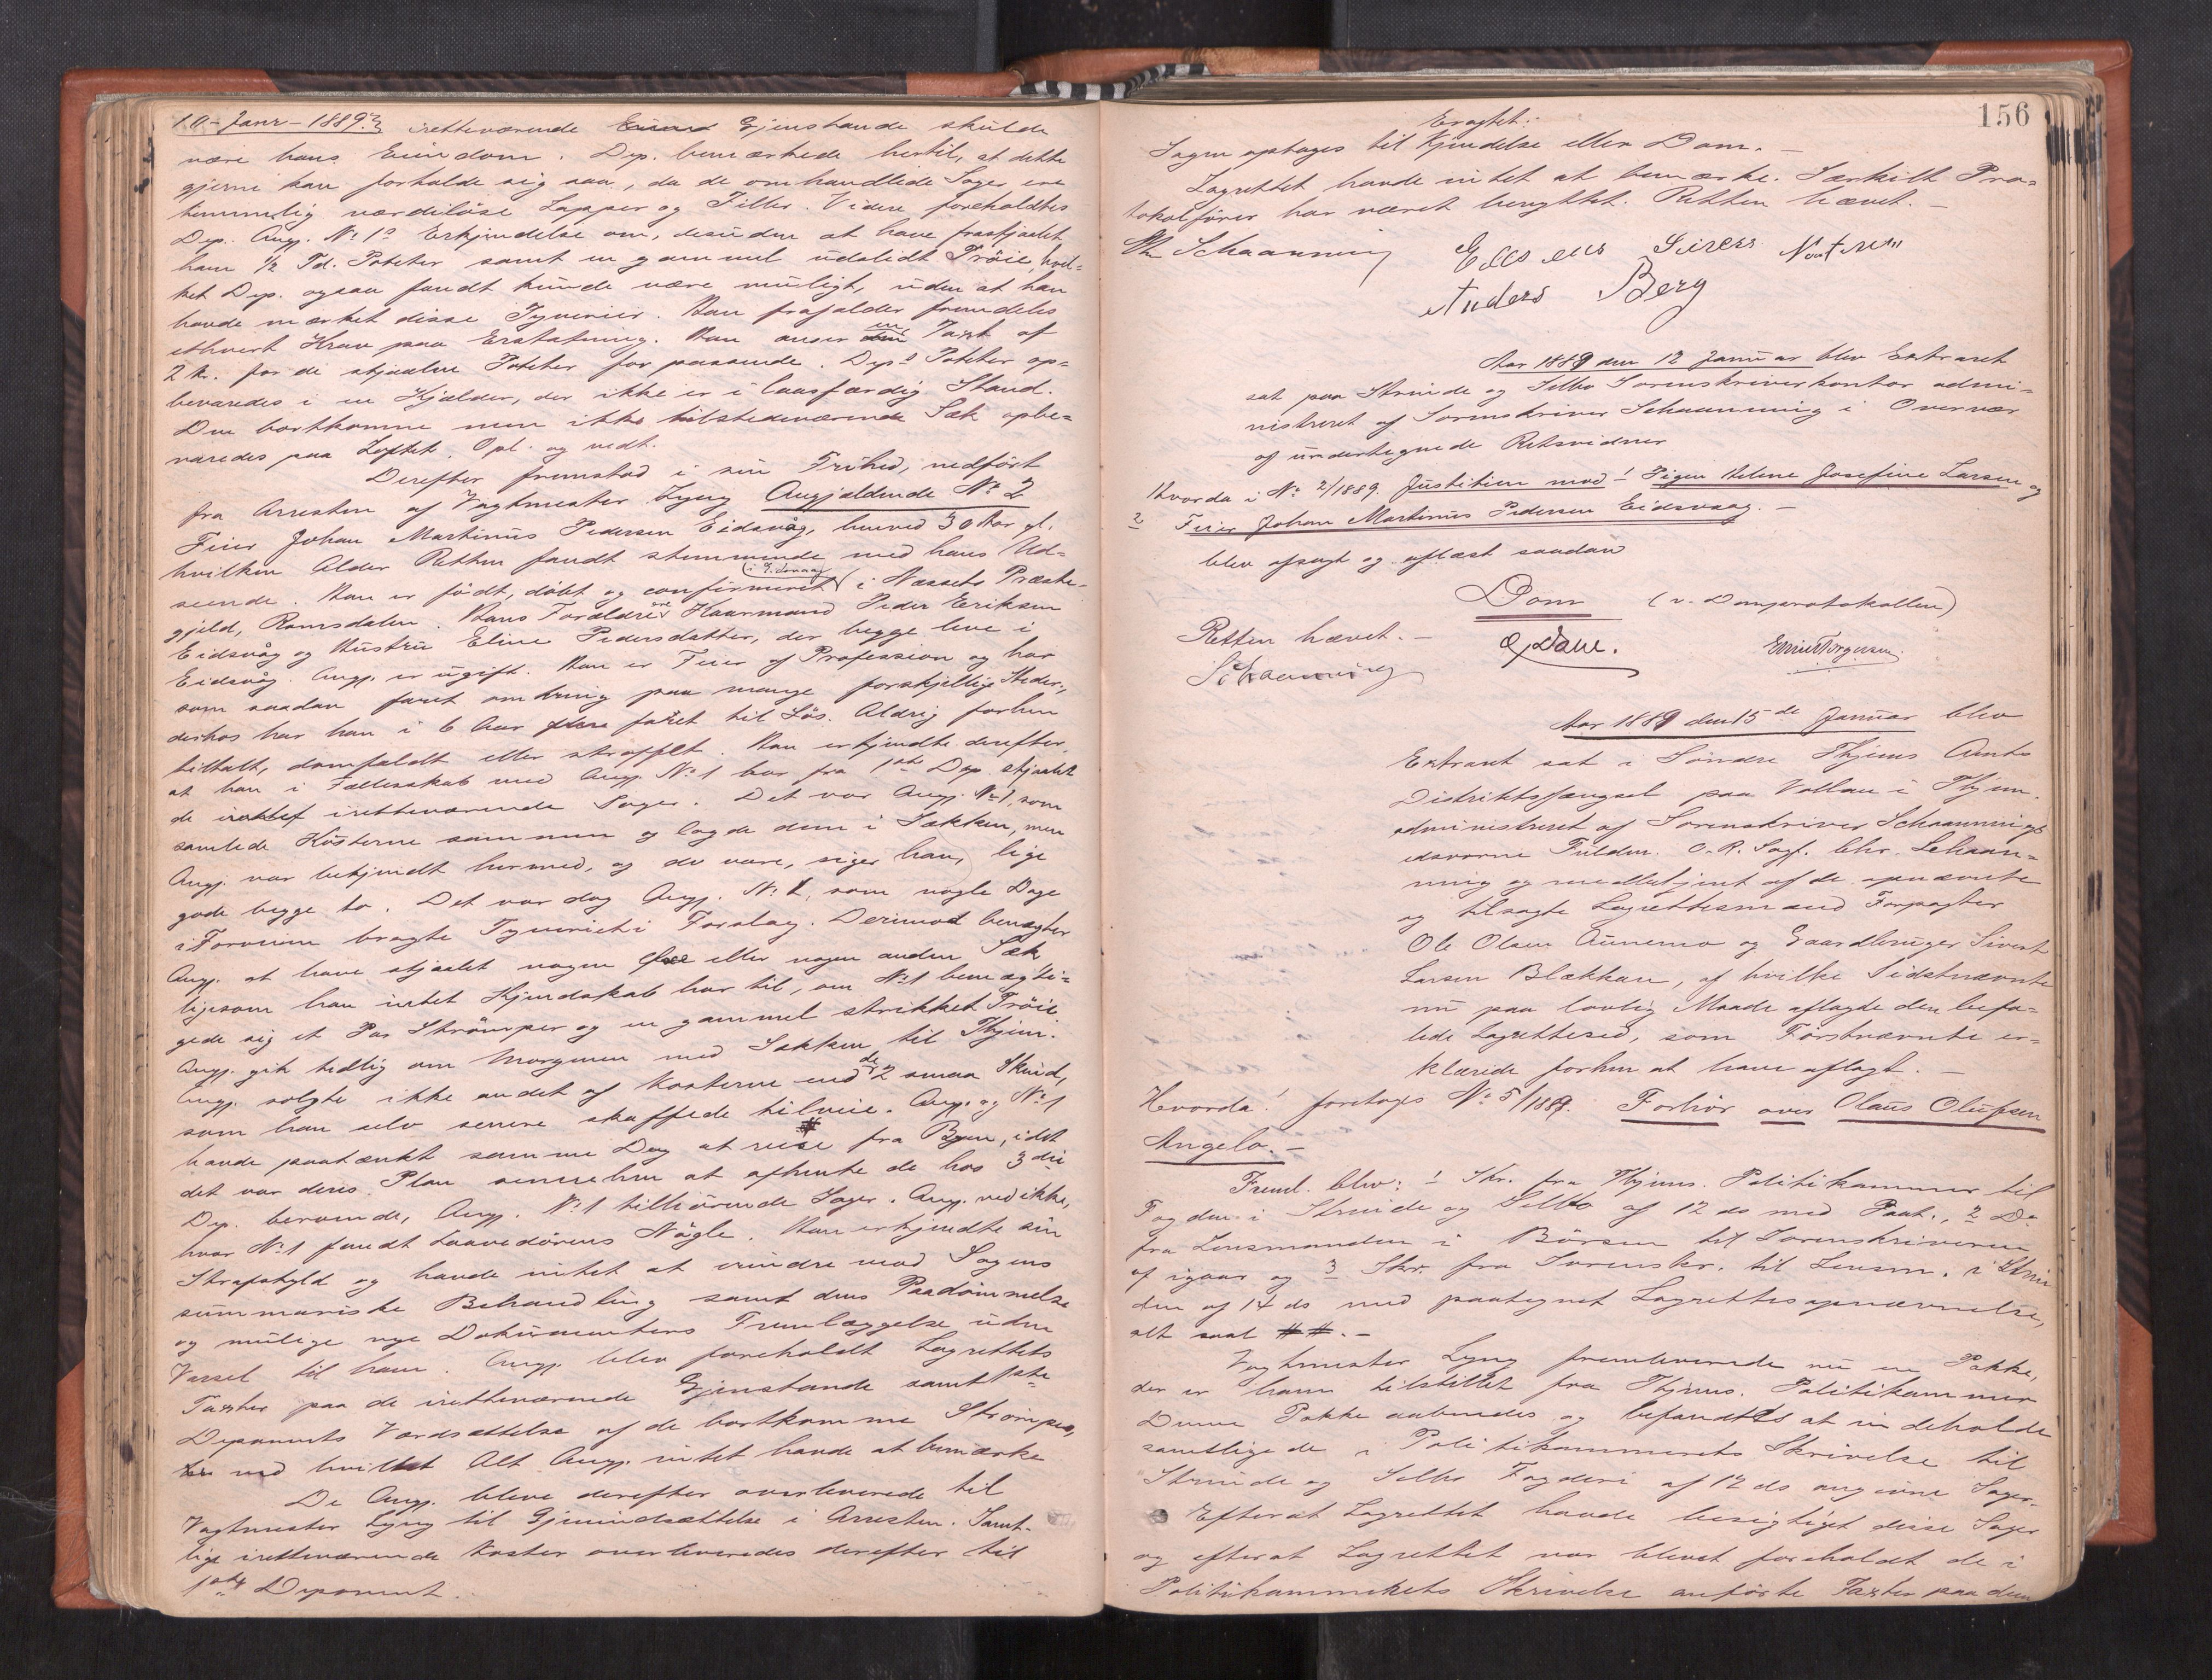 10-Janr-1889. iretteværende Gjenstande skulde
være hans Eiendom. Dep. bemærkede hertil, at dette
gjerne kan forholde sig saa, da de omhandlede Sager ere
temmelig værdiløse Lapper og Filler. Videre foreholdtes
Dep. Angj. No 1s Erkjendelse om, desuden at have frastjaalet
ham 1/2 Td. Poteter samt en gammel udslidt Trøie, hvil-
ket Dep. ogsaa fandt kunde være muligt, uden at han
havde mærket disse Tyverier. Han frafalder fremdeles
ethvert Krav paa Erstatning. Han anser en Taxt af
2 Kr. for de stjaalne Poteter for passende. Deps Poteter op-
bevaredes i en Kjælder, der ikke er i laasfærdig Stand.
Den bortkomne men ikke tilstedeværende Sæk opbe-
varedes paa Loftet. Opl. og vedt.
Derefter fremstod i sin Frihed, nedført
fra Arresten af Vagtmester Lyng Angjældende No 2
Feier Johan Martinus Pedersen Eidsvåg, henved 30 Aar gl.
hvilken Alder Retten fandt stemmende med hans Ud-
seende. Han er født, døbt og confirmeret (i Eidsvaag) i Nessets Præste-
gjeld, Romsdalen. Hans Forældre ere Haarmand Peder Eriksen
Eidsvåg og Hustru Eline Pedersdatter, der begge leve i
Eidsvåg. Angj. er ugift. Han er Feier af Profession og har
som saadan faret omkring paa mange forskjellige Steder,
derhos har han i 6 Aar faret til Søs. Aldrig forhen
tiltalt, domfældt eller straffet. Han erkjendte derefter,
at han i Fællesskab med Angj. No 1 har fra 1ste Dep. stjaalet
de iretteværende Sager. Det var Angj. No 1, som
samlede Kosterne sammen og lagde dem i Sækken, men
Angj. var bekjendt hermed, og de vare, siger han, lige
gode begge to. Det var dog Angj. No 1, som nogle Dage
i Forveien bragte Tyveriet i Forslag. Derimod benægter
Angj. at have stjaalet nogen eller nogen anden Sæk
ligesom han intet Kjendskab har til, om No 1 bemægti-
gede sig et Par Strømper og en gammel strikket Trøie.
Angj. gik tidlig om Morgenen med Sækken til Thjem.
Angj. solgte ikke andet af Kosterne end de 2 smaa Skind,
som han selv senere skaffede tilveie. Angj. og No 1
havde paatænkt samme Dag at reise fra Byen, idet
det var deres Plan senerehen at afhente de hos 3die
Dep. beroende, Angj. No 1 tilhørende Sager. Angj. ved ikke,
hvor No 1 fandt Laavedørens Nøgle. Han erkjendte sin
Strafskyld og havde intet at erindre mod Sagens
summariske Behandling samt dens Paadømmelse
og mulige nye Dokumenters Fremlæggelse uden
Varsel til ham. Angj. blev foreholdt Lagrettets
Taxter paa de iretteværende Gjenstande samt 1ste
Deponents Værdsættelse af de bortkomne Strømper,
ved hvilket Alt Angj. intet havde at bemærke
De Angj. bleve derefter overleverede til
Vagtmester Lyng til Gjenindsættelse i Arresten. Samt-
lige iretteværende Koster overleveredes derefter til
1ste Deponent.
156
Eragtet:
Sagen optages til Kjendelse eller Dom. –
Lagrettet havde intet at bemærke. Særskilt Pro-
tokolfører har været benyttet. Retten hævet. –
Schaanning
Anders Berg
Aar 1889 den 12 Januar blev Extraret
sat paa Strinde og Selbo Sorenskriverkontor admi-
nistreret af Sorenskriver Schaanning i Overvær
af undertegnede Retsvidner
Hvorda i No 2/1889. Justitien mod 1 Pigen Helene Josefine Larsen og
2 Feier Johan Martinus Pedersen Eidsvaag. –
blev afsagt og aflæst saadan
Dom (v. Domprotokollen)
Retten hævet. –
Schaanning
Aar 1889 den 15de Januar blev
Extraret sat i Søndre Thjems Amts
Distriktsfængsel paa Vollan i Thjem.
administreret af Sorenskriver Schaannings
edsvorne Fuldm. O.R. Sagf. Chr. Schaan-
ning og medbetjent af de opnævnte
og tilsagte Lagrettesmænd Forpagter
Ole Olsen Aunemo og Gaardbruger Sivert
Larsen Blækkan, af hvilke Sidstnævnte
nu paa lovlig Maade aflagde den befa-
lede Lagretteed, som Førstnævnte er-
klærede forhen at have aflagt. –
Hvorda! foretoges No 5/1889. Forhør over Olaus Olufsen
Angelo. –
Freml. blev: 1 Skr. fra Thjems. Politikammer til
Fogden i Strinde og Selbo af 12 ds med Paat., 2 Do
fra Lensmanden i Børsen til Sorenskriveren
af igaar og 3 Skr. fra Sorenskr. til Lensm. i Strin
den af 14 ds med paategnet Lagrettesopnævnelse,
alt saal ##. –
Vagtmester Lyng fremleverede nu en Pakke,
der er ham tilstillet fra Thjems. Politikammer
Denne Pakke aabnedes og befandtes at indeholde
samtlige de i Politikammerets Skrivelse til
Strinde og Selbo Fogderi af 12 ds angivne Sager.
Efterat Lagrettet havde besigtiget disse Sager
og efterat Lagrettet var blevet foreholdt de i
Politikammerets Skrivelse anførte Taxter paa dem